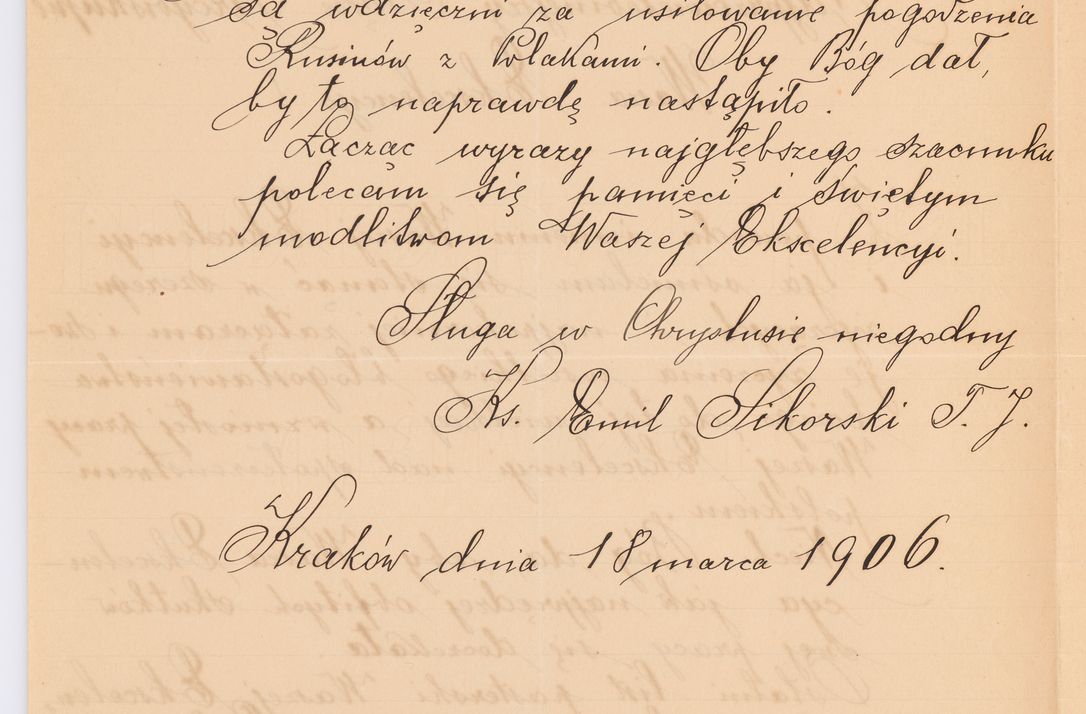 są wdzięczni za usiłowanie pogodzenia
Rusinów z Polakami. Oby Bóg dał,
by to naprawdę nastąpiło.
Łacząc wyrazy najgłębszego szacunku
polecam się pamięci i świętym
modlitwom Waszej Ekscelencyi.
Sługa w Chrystusie niegodny
Ks. Emil Sikorski T. J.
Kraków dnia 18 marca 1906.